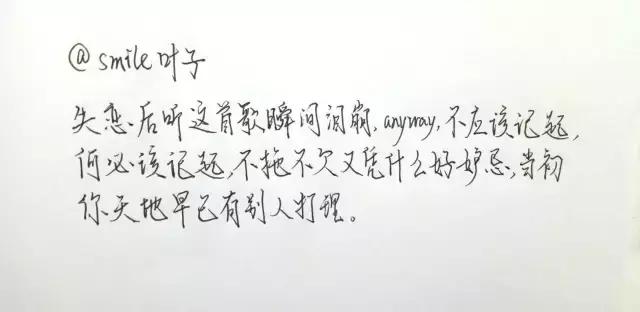 @smile叶子
失恋后听这首歌瞬间泪崩,anyway,不应该记起,
何必该记起,不拖不欠又凭什么好妒忌,当初
你天地早已有别人打理。